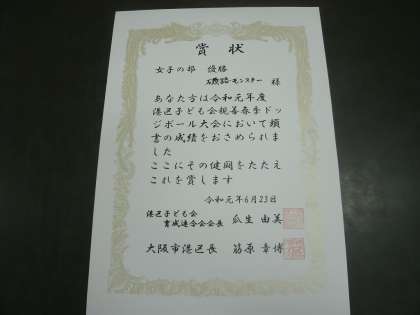 賞状
女子の部 優勝
磯路モンスター 様
あなた方は令和元年度
港区子ども会親善春季ドッ
ジボール大会において頭
書の成績をおさめられま
した
ここにその健闘をたたえ
これを賞します
令和元年6月23日
港区子ども会
育成連合会会長 瓜生 由美
大阪市港区長 筋原 章博